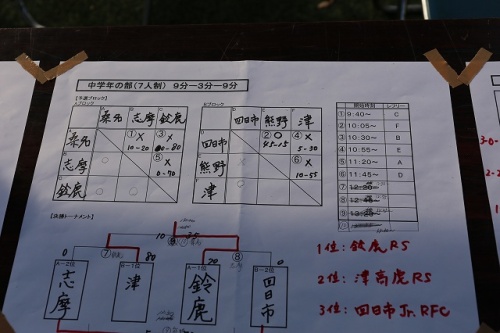 中学年の部(7人制) 9分ー3分ー9分
桑名 志摩 鈴鹿
桑名 ①× ③×
10-20 00-80
志摩 ⑤×
0-70
鈴鹿
四日市 熊野 津
四日市 ②○ ④×
45-15 5-30
熊野 ⑥×
10-55
津
開始時間 レフリー
① 9:40～ C
② 10:05～ F
③ 10:30～ B
④ 10:55～ E
⑤ 11:20～ A
⑥ 11:45～ D
⑦ 12:30～
⑧ 12:55～
⑨ 13:25～
【決勝トーナメント】
10 35
0 ⑦ 80 20 ⑧ 0
A-2位 B-1位 A-1位 B-2位
志摩 津 鈴鹿 四日市
1位:鈴鹿RS
2位:津高虎RS
3位:四日市Jr.RFC